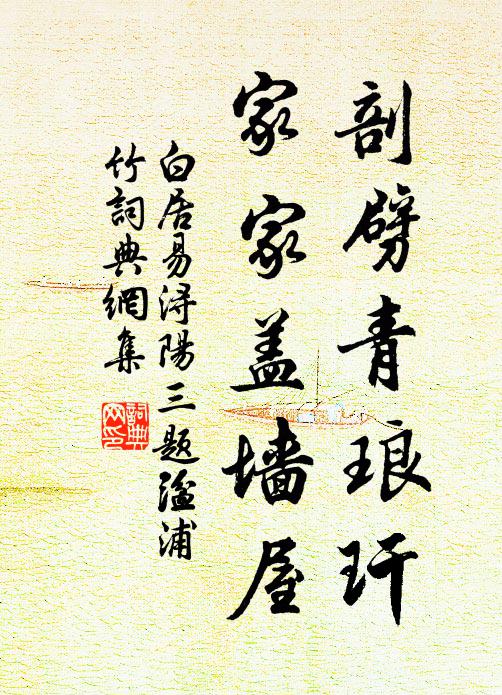 剖劈青琅玕
家家盖墙屋
白居易浔陽三题湓浦
竹詞典網集
詞典网印